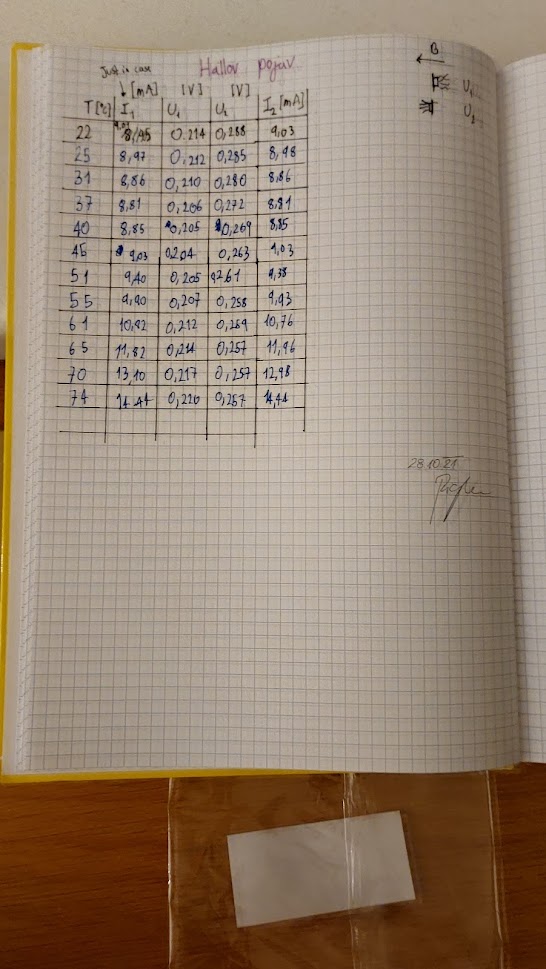 Just in case Hallov pojav B
↓ [mA] [V] [V] U₁
T[°C] I₁ U₁ U₂ I₂ [mA] U₂
22 8,95 0.214 0,288 9,03
25 8,97 0,212 0,285 8,98
31 8,86 0,210 0,280 8,86
37 8,81 0,206 0,272 8,81
40 8,85 0,205 0,269 8,85
45 9,03 0,204 0,263 9,03
51 9,40 0,205 0,261 9,38
55 9,90 0,207 0,258 9,93
61 10,82 0,212 0,259 10,76
65 11,82 0,214 0,257 11,96
70 13,10 0,217 0,257 12,98
74 14.44 0,220 0,257 14,44
28.10.21